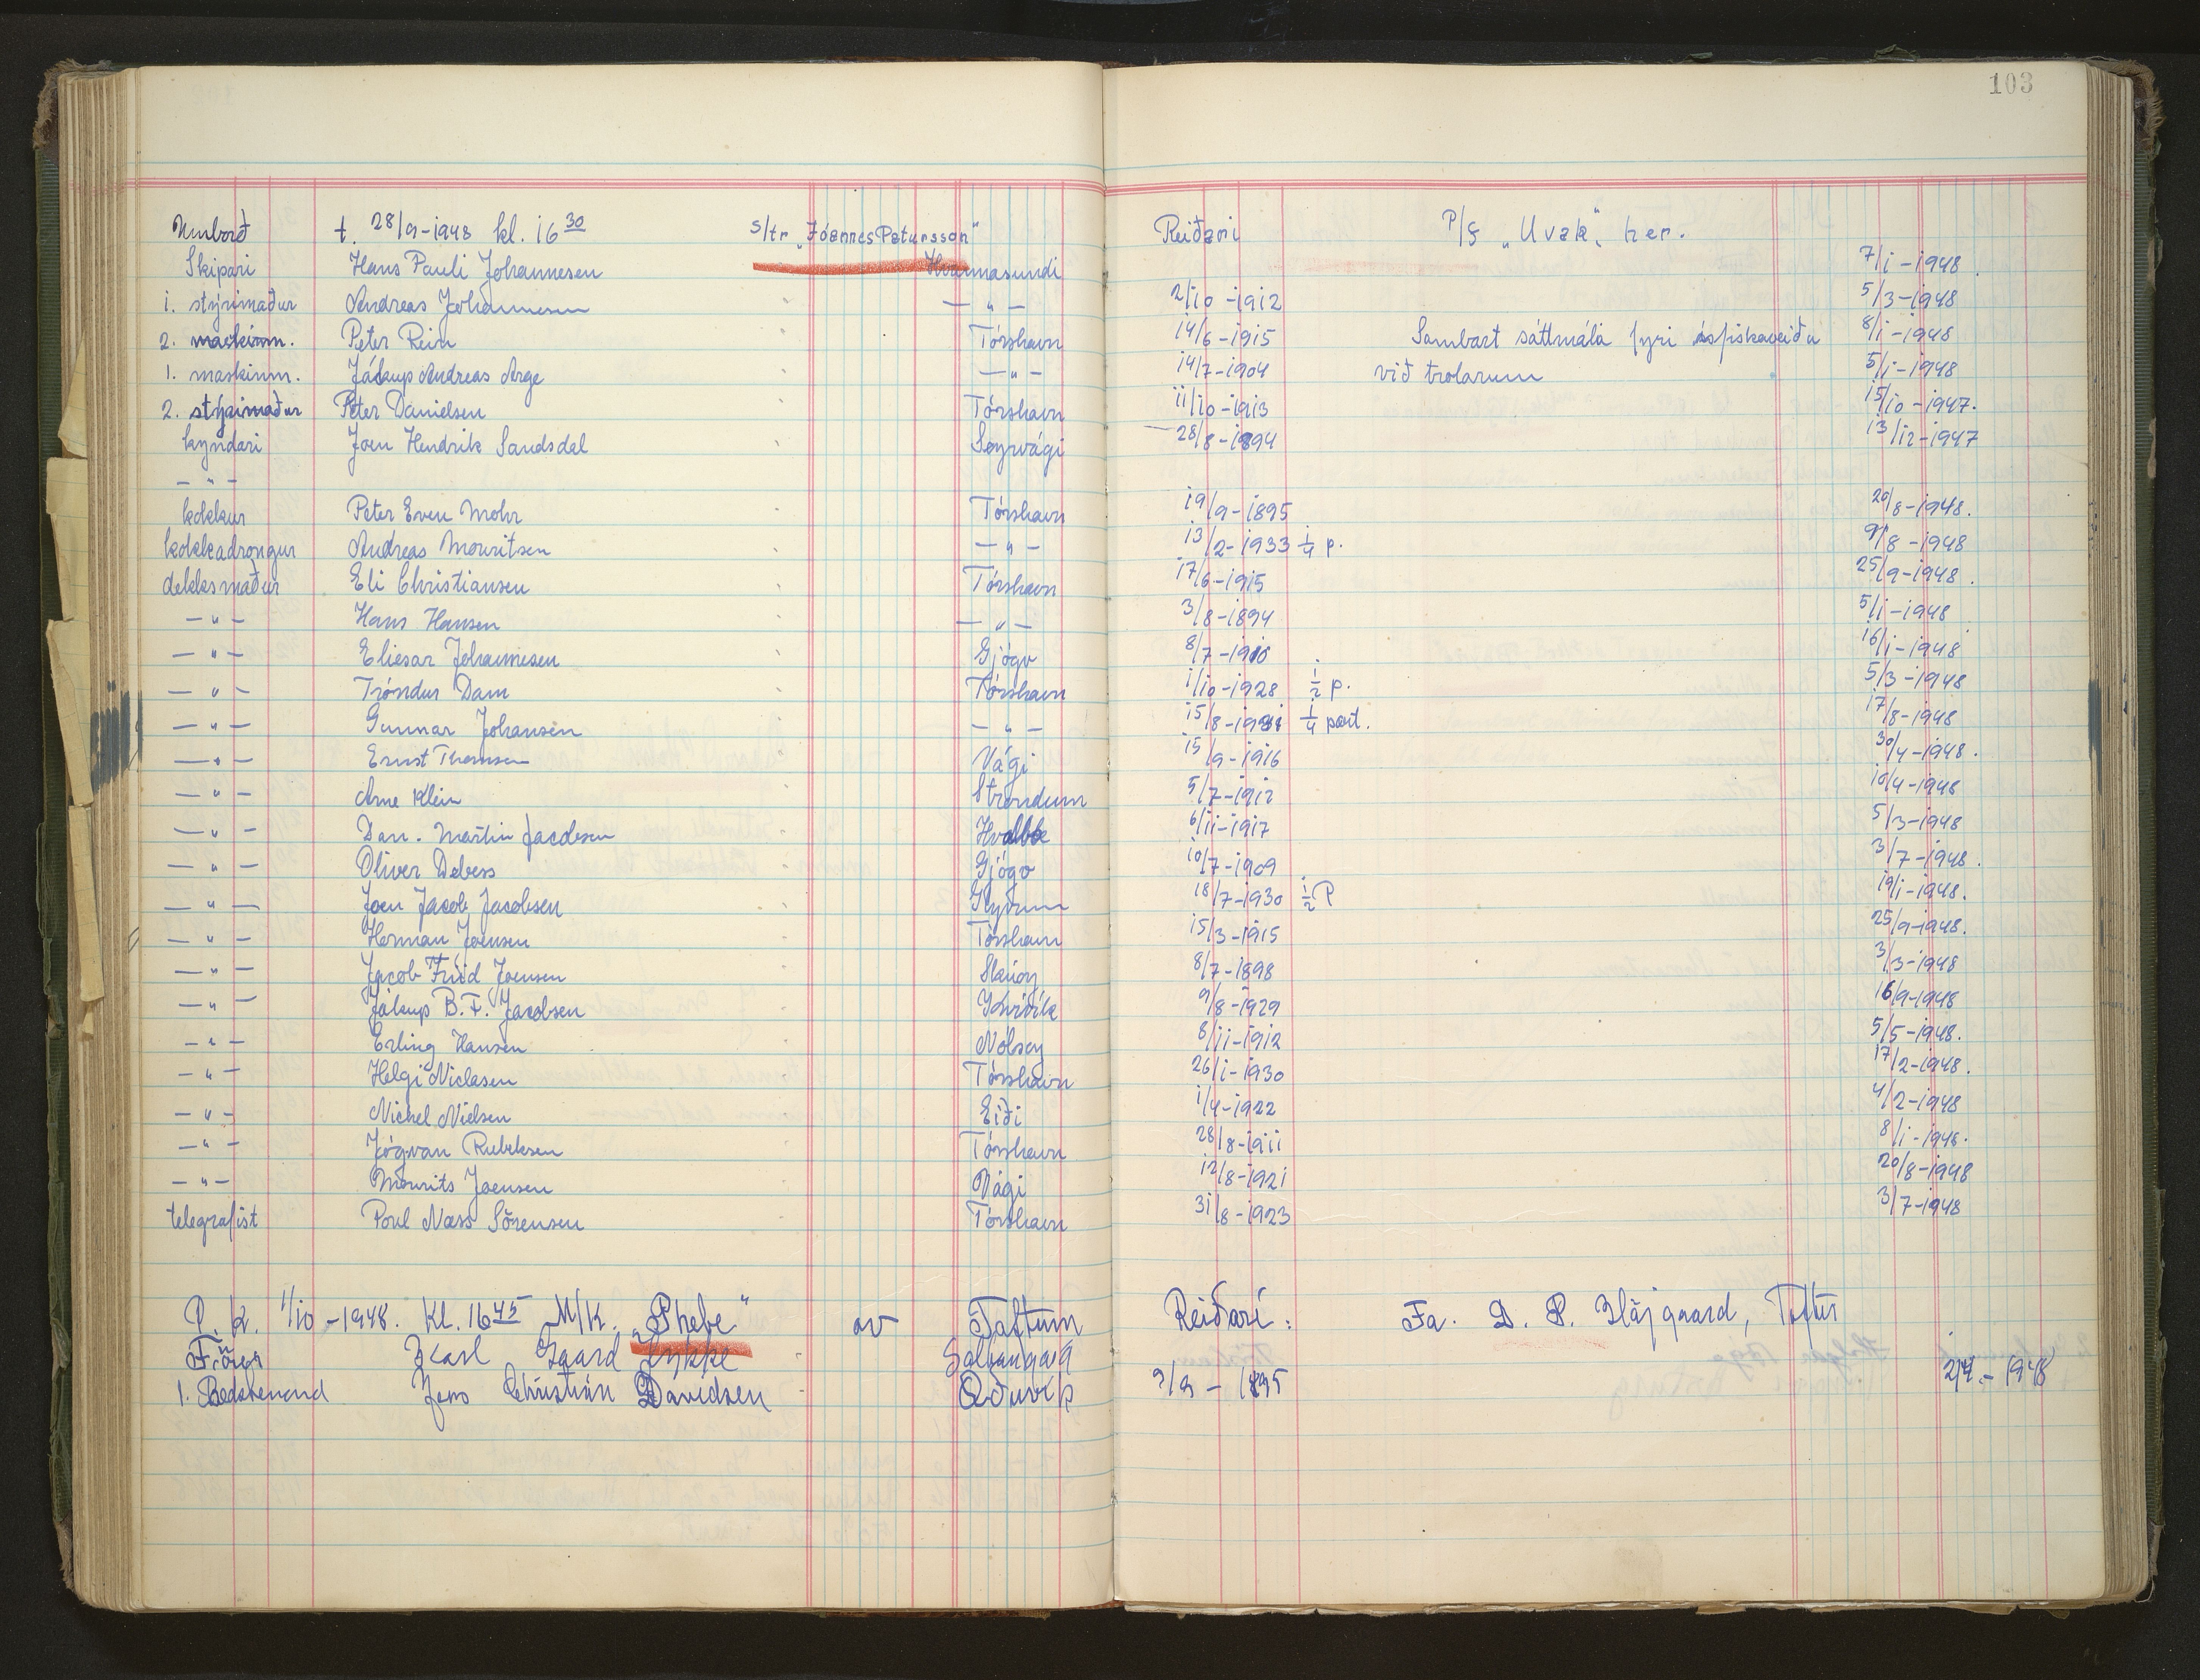 103
Umborð t. 28/9-1948 kl. 16 30 s/tr. „Jóannes Patursson" Reiðari P/F „Uvak", her.
Skipari Hans Pauli Johannesen Hvannasundi 7/1-1948.
1. stýrimaður Andreas Johannesen — " — 2/10-1912 5/3-1948
2. maskinm. Peter Rein Tórshavn 14/6-1915 Sambart sáttmála fyri ísfiskaveiðu 8/1-1948
1. maskinm. Jákup Andreas Arge — " — 14/7-1904 við trolarum 5/1-1948
2. stýrimaður Peter Danielsen Tórshavn 11/10-1913 15/10-1947.
kyndari Joen Hendrik Sandsdal Sørvági 28/8-1894 13/12-1947
— " —
kokkur Peter Even Mohr Tórshavn 19/9-1895 20/8-1948.
kokkadrongur Andreas Mouritsen — " — 13/2-1933 1/4 p. 9/8-1948
dekksmaður Eli Christiansen Tórshavn 17/6-1915 25/9-1948.
— " — Hans Hansen — " — 3/8-1894 5/1-1948
— " — Eliesar Johannesen Gjógv 8/7-1910 16/1-1948
— " — Tróndur Dam Tórshavn 1/10-1928 1/2 p. 5/3-1948
— " — Gunnar Johansen — " — 15/8-1931 1/4 part. 17/8-1948
— " — Ernst Thomsen Vági 15/9-1916 30/4-1948.
— " — Arne Klein Strondum 5/7-1912 10/4-1948
— " — Dan. Martin Jacobsen Hvalba 6/11-1917 5/3-1948
— " — Oliver Debess Gjógv 10/7-1909 3/7-1948.
— " — Joen Jacob Jacobsen 18/7-1930 1/2 P 19/1-1948.
— " — Herman Joensen Tórshavn 15/3-1915 25/9-1948.
— " — Jacob Joensen Skúoy 8/7-1898 3/3-1948
— " — Jákup B. F. Jacobsen Kvívík 9/8-1929 16/9-1948
— " — Erling Hansen Nólsoy 8/11-1912 5/5-1948.
— " — Helgi Niclasen Tórshavn 26/1-1930 17/2-1948.
— " — Nickel Nielsen Eiði 1/4-1922 4/2-1948
— " — Jógvan Rubeksen Tórshavn 28/8-1911 8/1-1948.
— " — Mourits Joensen Vági 12/8-1921 20/8-1948
telegrafist Poul Næss Sörensen Tórshavn 31/8-1923 3/7-1948
P. k. 1/10-1948. Kl. 16 45 M/K. „Phebe" av Toftum Reiðari: Fa. D. P. Højgaard, Toftir
Förar Karl Gaard Lykke Saltangará
1. Bedstemand Jens Christian Davidsen Oðuvík 9/9-1895 2/4.-1948